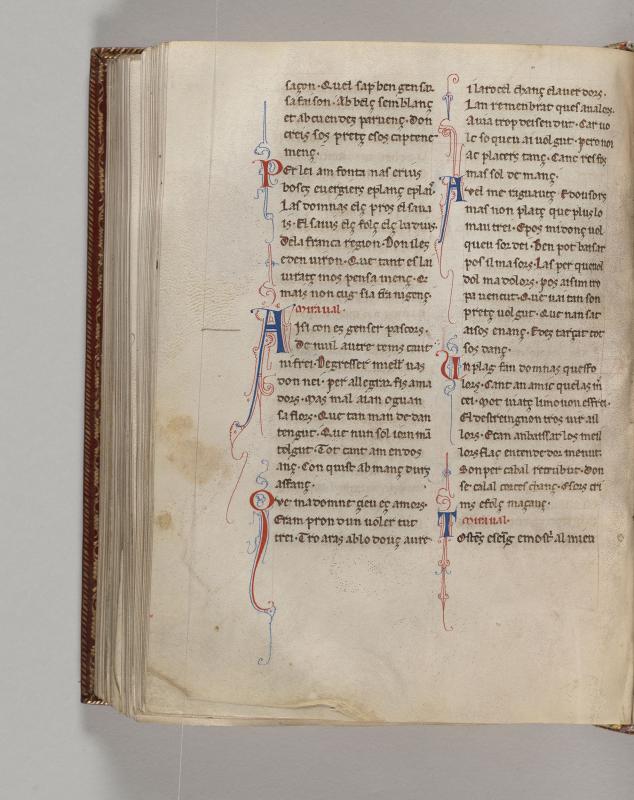 saçon. Quel sap ben gen sa
sa faison. Ab belç semblanç
et ab cuendes parvenç. Don
creis sos pretç e sos captene
menç.
Per lei am fontanas e rius
boscs e vergiers e planç e plai
Las domnas elç pros el sava
is. El savis elç folç elç badius
de la franca region. Don il es
e den viron. Que tant es lai
viratç mos pensamenç. Qe
mais non cug sia fra nigenç.
Miraval.
Aisi con es genser pascors.
De nuil autre tems caut
ni frei. Degr esser meill vas
don nei. per allegrar fis ama
dors. Mas mal aian ogan
sa flors. Que tan man de dan
tengut. Que nun sol iorn mā
tolgut. Tot cant am en dos
anç. Con quist ab manç durs
affanç.
Que ma domne qieu eç amors.
Eram pron dun voler tut
trei. Tro aras ab lo douç aure
il arocel chanç el aver dors.
Lan remenbrat ques analar.
Auia trop deisendut. Car vo
le so queu ai volgut. pero noi
ac placers tanç. Canc res fos
mas sol demanç.
Avel me rigautç. E dousors
mas non platç que plus lo
mautrei. E pos midonç vol
queu sordei. Ben pot baisar
pos il ma sors. Las per quenol
dol ma dolors. pos aisim tro
pa vencut. Que vai tan son
pretç volgut. Que nan fat
aisos enanç. E des tarçat tot
sos danç.
Un plag fan domnas ques fo
lors. Cant an amic quelas m
cei. Mot viatç limovon esfrei.
El destreingnon tros vir ail
lors. E can an baissat los meil
lors flaç entendedor menut.
Son per cabal recebut. Don
se calal cortes chanç. E sors cri
ms e folç maçanç.
Miraval.
Tostęs eseig emostr al mieu